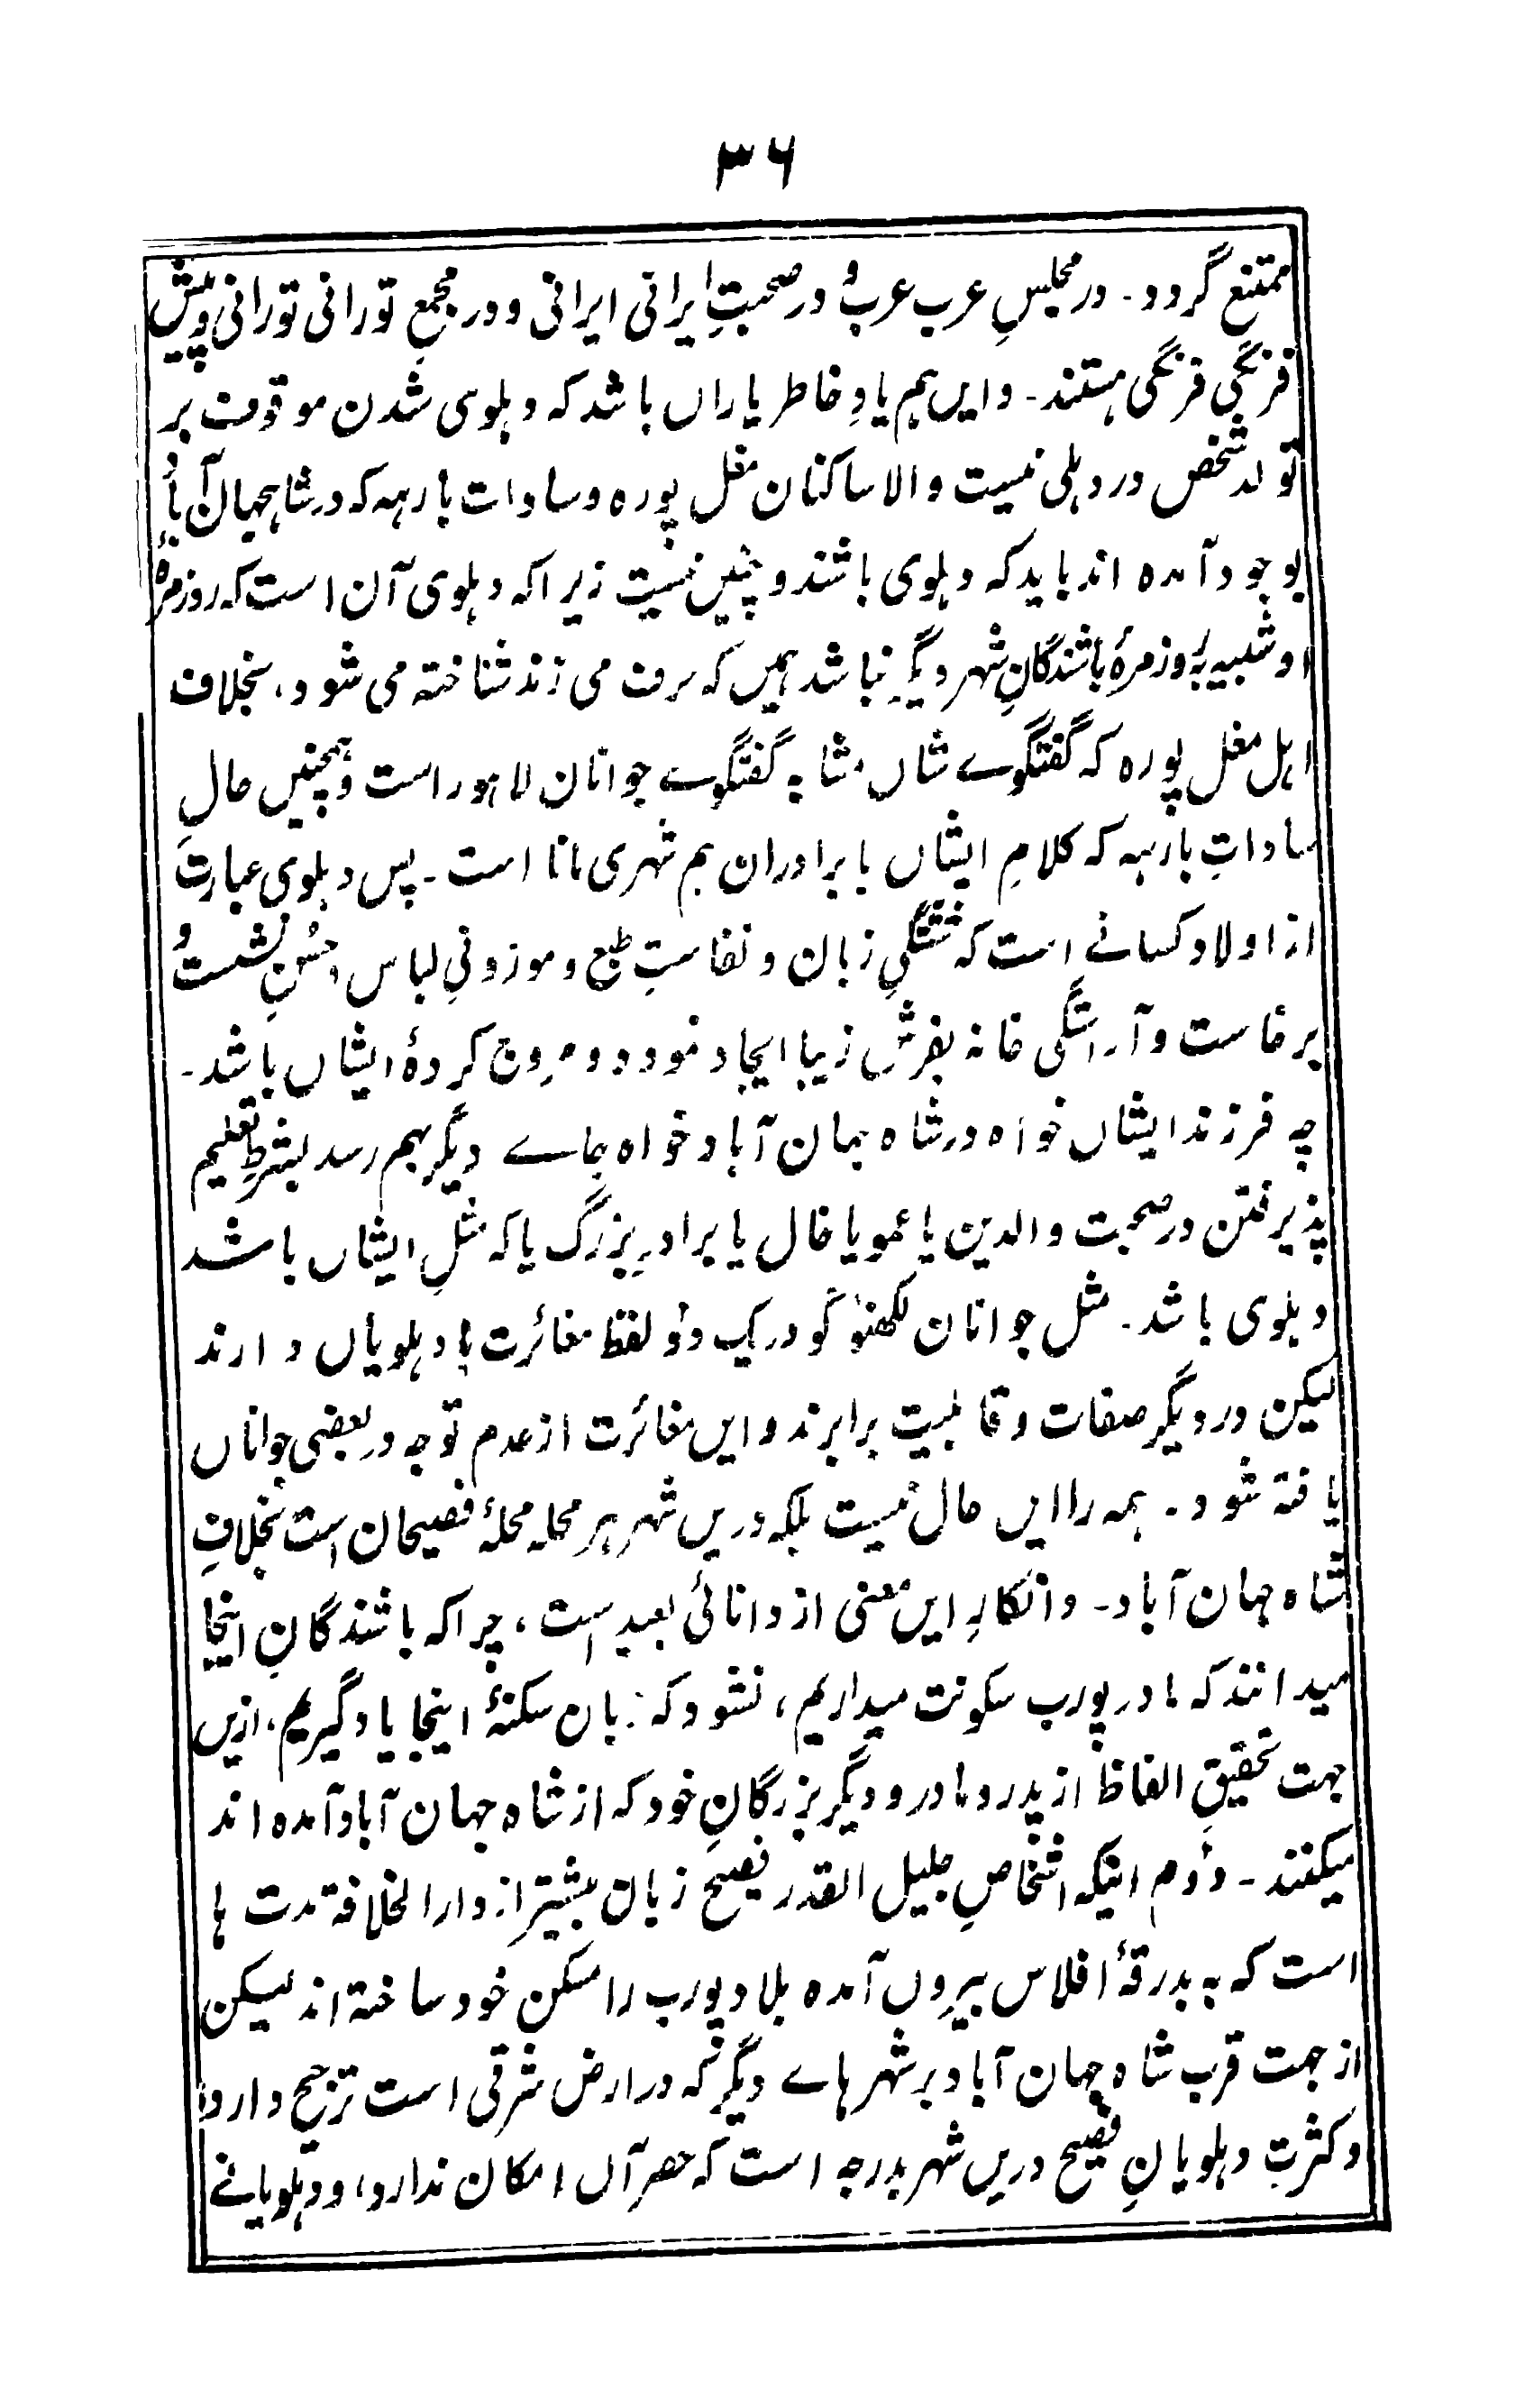 ۳۶
ممتنع گردد۔ در مجلسِ عرب عرب و در صحبتِ ایرانی ایرانی و در مجمعِ تورانی تورانی و پیش
فرنگی فرنگی ہستند۔ و ایں ہم یادِ خاطر یاراں باشد کہ دہلوی شدن موقوف بر
تولد شخص در دہلی نیست والا ساکنان مغل پورہ و سادات بارہہ کہ در شاہجہاں آباد
بوجود آمدہ اند باید کہ دہلوی باشند و چنیں نیست زیراکہ دہلوی آن است کہ روزمرہ
او شبیہ بروزمرۂ باشندگانِ شہر دیگر نباشد ہمیں کہ حرف می زند شناختہ می شود، بخلاف
اہل مغل پورہ کہ گفتگوے شاں مشابہ گفتگوے جوانان لاہور است و ہمچنیں حالِ
ساداتِ بارہہ کہ کلامِ ایشاں با برادران ہم شہری مانا است۔ پس دہلوی عبارت
از اولاد کسانے است کہ شستگیِ زبان و نفاستِ طبع و موزونیِ لباس و حسنِ نشست و
برخاست و آراستگی خانہ بفرش زیبا ایجاد نمودہ و مروج کردۂ ایشاں باشد۔
چہ فرزند ایشاں خواہ در شاہ جہان آباد خواہ جاے دیگر بہم رسد بشرط تعلیم
پذیرفتن در صحبت والدین یا عمو یا خال یا برادرِ بزرگ یا کہ مثلِ ایشاں باشد
دہلوی باشد۔ مثل جوانان لکھنؤ گو در یک دو لفظ مغائرت با دہلویاں دارند
لیکن در دیگر صفات و قابلیت برابرند و ایں مغائرت از عدم توجہ در بعضی جواناں
یافتہ شود۔ ہمہ را ایں حال نیست بلکہ دریں شہر ہر محلہ محلۂ فصیحان است بخلافِ
شاہ جہان آباد۔ و انکارِ ایں معنی از دانائی بعید است، چراکہ باشندگانِ اینجا
میدانند کہ ما در پورب سکونت میداریم، نشود کہ زبان سکنۂ اینجا یاد گیریم، ازیں
جہت تحقیقِ الفاظ از پدر و مادر و دیگر بزرگانِ خود کہ از شاہ جہان آباد آمدہ اند
میکنند۔ دوم اینکہ اشخاصِ جلیل القدر فصیح زبان بیشتر از دار الخلافۃ مدت ہا
است کہ بہ بدرقۂ افلاس بیروں آمدہ بلاد پورب را مسکن خود ساختہ اند لیکن
از جہت قرب شاہ جہان آباد بر شہر ہاے دیگر کہ در ارض شرقی است ترجیح دارد،
و کثرتِ دہلویانِ فصیح دریں شہر بدرجہ است کہ حصر آں امکان ندارد، و دہلویانے